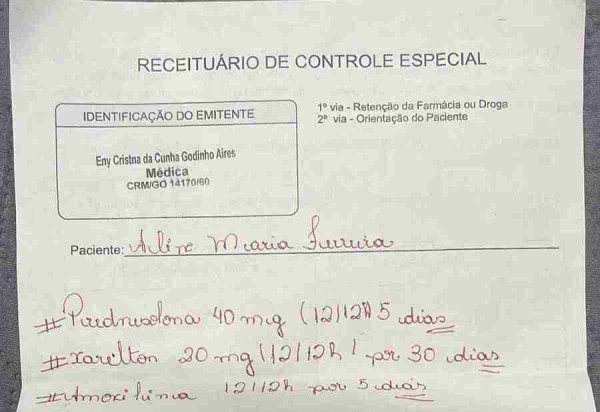 RECEITUÁRIO DE CONTROLE ESPECIAL
IDENTIFICAÇÃO DO EMITENTE
1º via - Retenção da Farmácia ou Droga
2º via - Orientação do Paciente
Eny Cristna da Cunha Godinho Aires
Médica
CRM/GO 14170/60
Paciente: Aline Maria Ferreira
#Prednisolona 40 mg (12/12h) 5 dias
#Xarelton 20 mg (12/12h) por 30 dias
#Amoxilina 12/12h por 5 dias